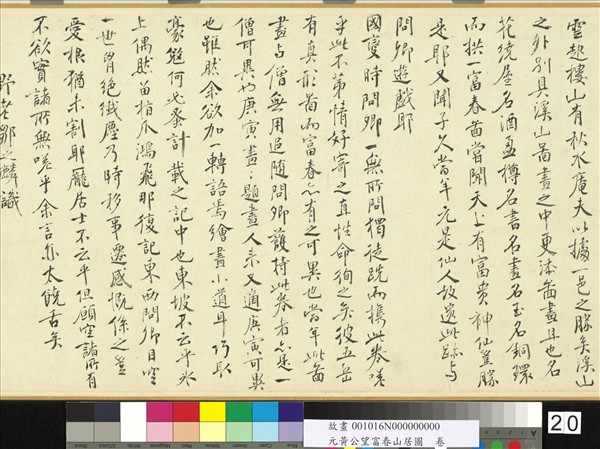 雲起樓山有秋水菴夫以據一邑之勝矣溪山
之外別具溪山圖畫之中更添圖畫且也名
花繞屋名酒盈樽名書名畫名玉名銅環
而拱一富春圖嘗聞天上有富貴神仙豈勝
是耶又聞子久當年元是仙人故遺此跡與
問卿遊戲耶
國變時問卿一無所問獨徒跣而攜此卷嗟
乎此不第情好寄之直性命徇之矣彼五岳
有真形圖而富春亦有之可異也當年此圖
畫與僧無用追隨問卿護持此卷者亦是一
僧可異也庚寅畫畫題畫人來又適庚寅可異
也雖然余欲加一轉語焉繪畫小道耳巧取
豪奪何必蚤計載之記中也東坡不云乎冰
上偶然留指爪鴻飛那復記東西問卿目空
一世胷絕纖塵乃時移事遷感慨係之豈
愛根猶未割耶龐居士不云乎但願空諸所有
不欲實諸所無嗟乎余言亦太饒舌矣
野老鄒之麟識
故畫 001016N000000000
元黃公望富春山居圖 卷
20